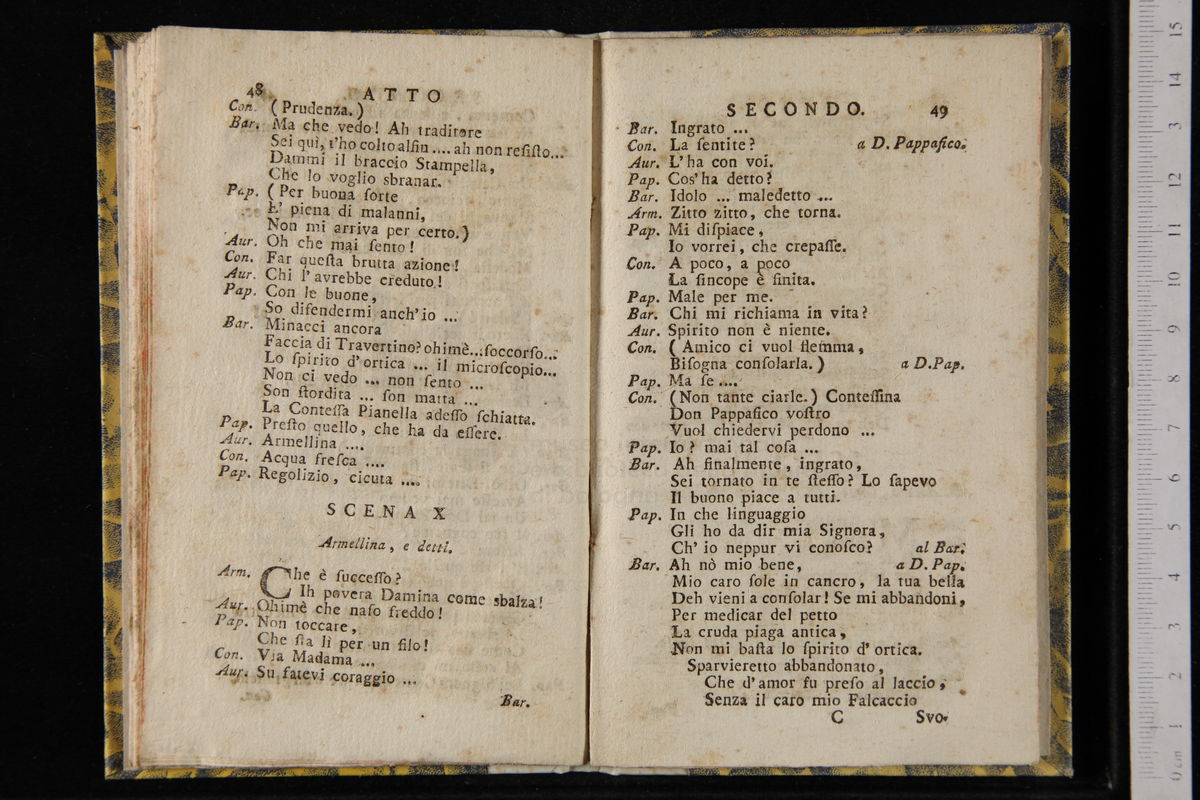 48 ATTO
Con. (Prudenza.)
Bar. Ma che vedo! Ah traditore
Sei quì, t'ho colto alfin .... ah non reſiſto...
Dammi il braccio Stampella,
Che lo voglio sbranar.
Pap. (Per buona ſorte
E' piena di malanni,
Non mi arriva per certo.)
Aur. Oh che mai ſento!
Con. Far queſta brutta azione!
Aur. Chi l'avrebbe creduto!
Pap. Con le buone,
So difendermi anch'io ...
Bar. Minacci ancora
Faccia di Travertino? ohimè...ſoccorſo...
Lo ſpirito d'ortica ... il microſcopio...
Non ci vedo ... non ſento ...
Son ſtordita ... ſon matta ...
La Conteſſa Pianella adeſſo ſchiatta.
Pap. Preſto quello, che ha da eſſere.
Aur. Armellina ....
Con. Acqua freſca ....
Pap. Regolizio, cicuta ....
SCENA X
Armellina, e detti.
Arm. Che è ſucceſſo?
Ih povera Damina come sbalza!
Aur. Ohimè che naſo freddo!
Pap. Non toccare,
Che ſta lì per un filo!
Con. Via Madama ...
Aur. Su fatevi coraggio ...
Bar.
SECONDO. 49
Bar. Ingrato ...
Con. La ſentite? a D. Pappafico.
Aur. L'ha con voi.
Pap. Cos'ha detto?
Bar. Idolo ... maledetto ...
Arm. Zitto zitto, che torna.
Pap. Mi diſpiace,
Io vorrei, che crepaſſe.
Con. A poco, a poco
La ſincope è finita.
Pap. Male per me.
Bar. Chi mi richiama in vita?
Aur. Spirito non è niente.
Con. (Amico ci vuol flemma,
Biſogna conſolarla.) a D.Pap.
Pap. Ma ſe ....
Con. (Non tante ciarle.) Conteſſina
Don Pappafico voſtro
Vuol chiedervi perdono ...
Pap. Io? mai tal coſa ...
Bar. Ah finalmente, ingrato,
Sei tornato in te ſteſſo? Lo ſapevo
Il buono piace a tutti.
Pap. In che linguaggio
Gli ho da dir mia Signora,
Ch' io neppur vi conoſco? al Bar.
Bar. Ah nò mio bene, a D. Pap.
Mio caro ſole in cancro, la tua bella
Deh vieni a conſolar! Se mi abbandoni,
Per medicar del petto
La cruda piaga antica,
Non mi baſta lo ſpirito d' ortica.
Sparvieretto abbandonato,
Che d'amor fu preſo al laccio,
Senza il caro mio Falcaccio
C Svo-
15
14
13
12
11
10
9
8
7
6
5
4
3
2
1
0 cm